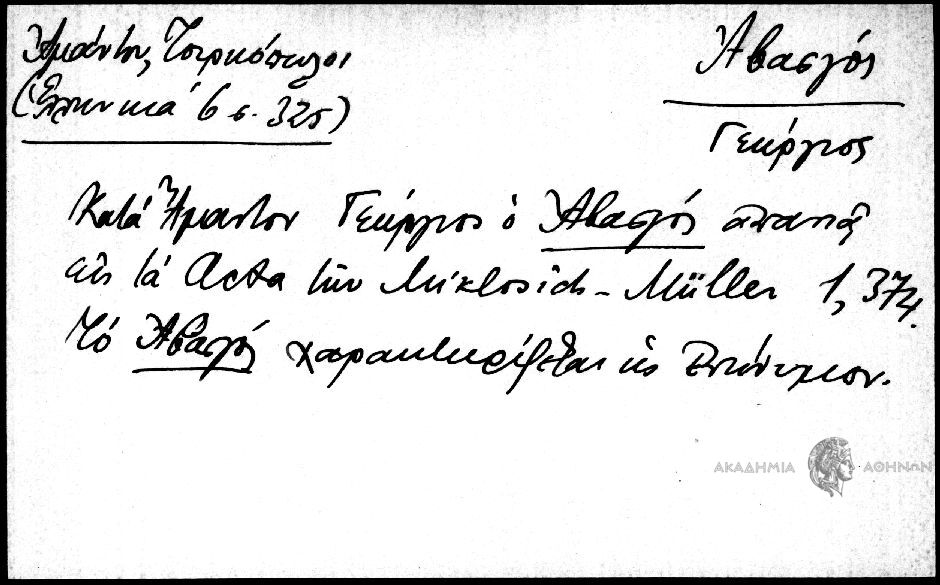 Ἀμάντου, Τουρκόπωλοι
(Ἑλληνικά 6 σ. 325)
Ἀβασγός
Γεώργιος
Κατά Ἄμαντον Γεώργιος ὁ Ἀβασγός ἀπαντᾷ
εἰς τά Acta τῶν Miklosich - Müller 1, 374.
Τό Ἀβασγός χαρακτηρίζεται ὡς ἐπώνυμον.
ΑΚΑΔΗΜΙΑ ΑΘΗΝΩΝ